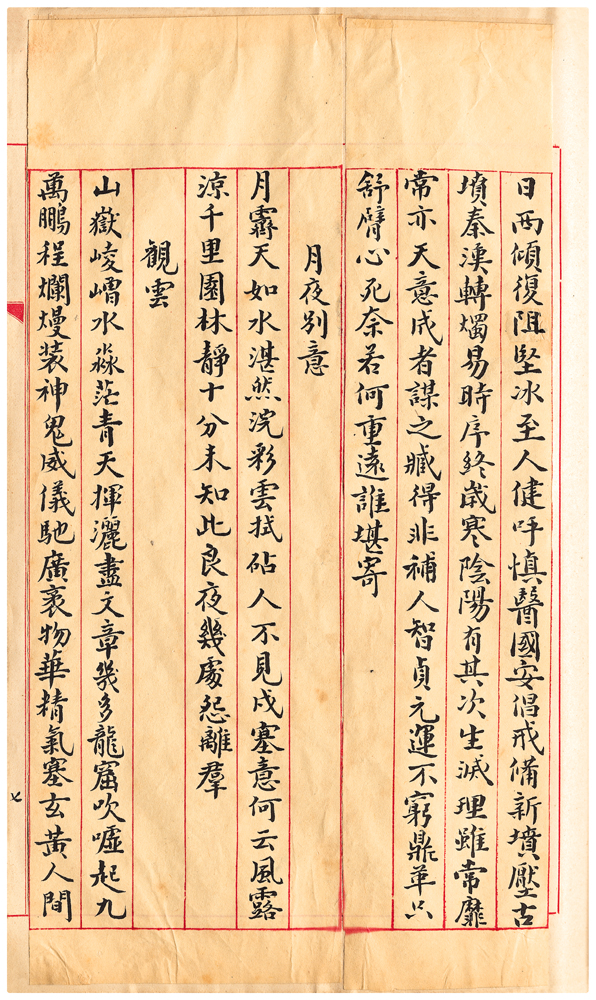 日西傾復阻堅冰至人健呼慎醫國安倡戒備新墳壓古
墳秦漢轉燭易時序終歲寒陰陽有其次生滅理雖常靡
常亦天意成者謀之臧得非補人智貞元運不窮鼎革只
舒臂心死奈若何重遠誰堪寄
月夜別意
月霽天如水湛然浣彩雲拭砧人不見戍塞意何云風露
涼千里園林靜十分未知此良夜幾處怨離羣
觀雲
山嶽崚嶒水淼茫青天揮灑盡文章幾多龍窟吹噓起九
萬鵬程爛熳裝神鬼威儀馳廣袤物華精氣塞玄黃人間
七